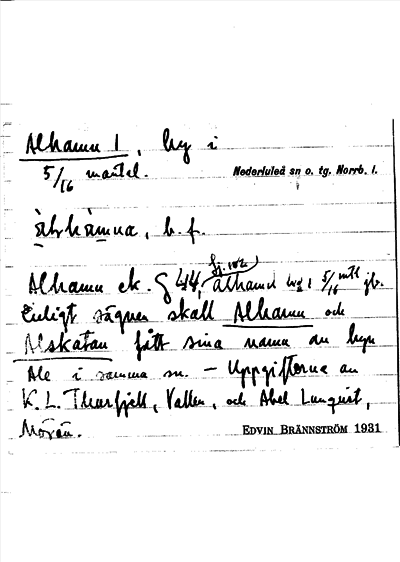 Alhamn 1, by i
5/16 mantal.
Nederluleå sn o. tg. Norrb. l.
àlhàmna, b. f.
Alhamn ek. § 44, Alhamn by 1 5/16 mtl jb.
Enligt sägner skall Alhamn och
Alskatan fått sina namn av byn
Ale i samma sn. – Uppgifterna av
K. L. Thurfjell, Vallen, och Abel Lunquist,
Mörön.
EDVIN BRÄNNSTRÖM 1931